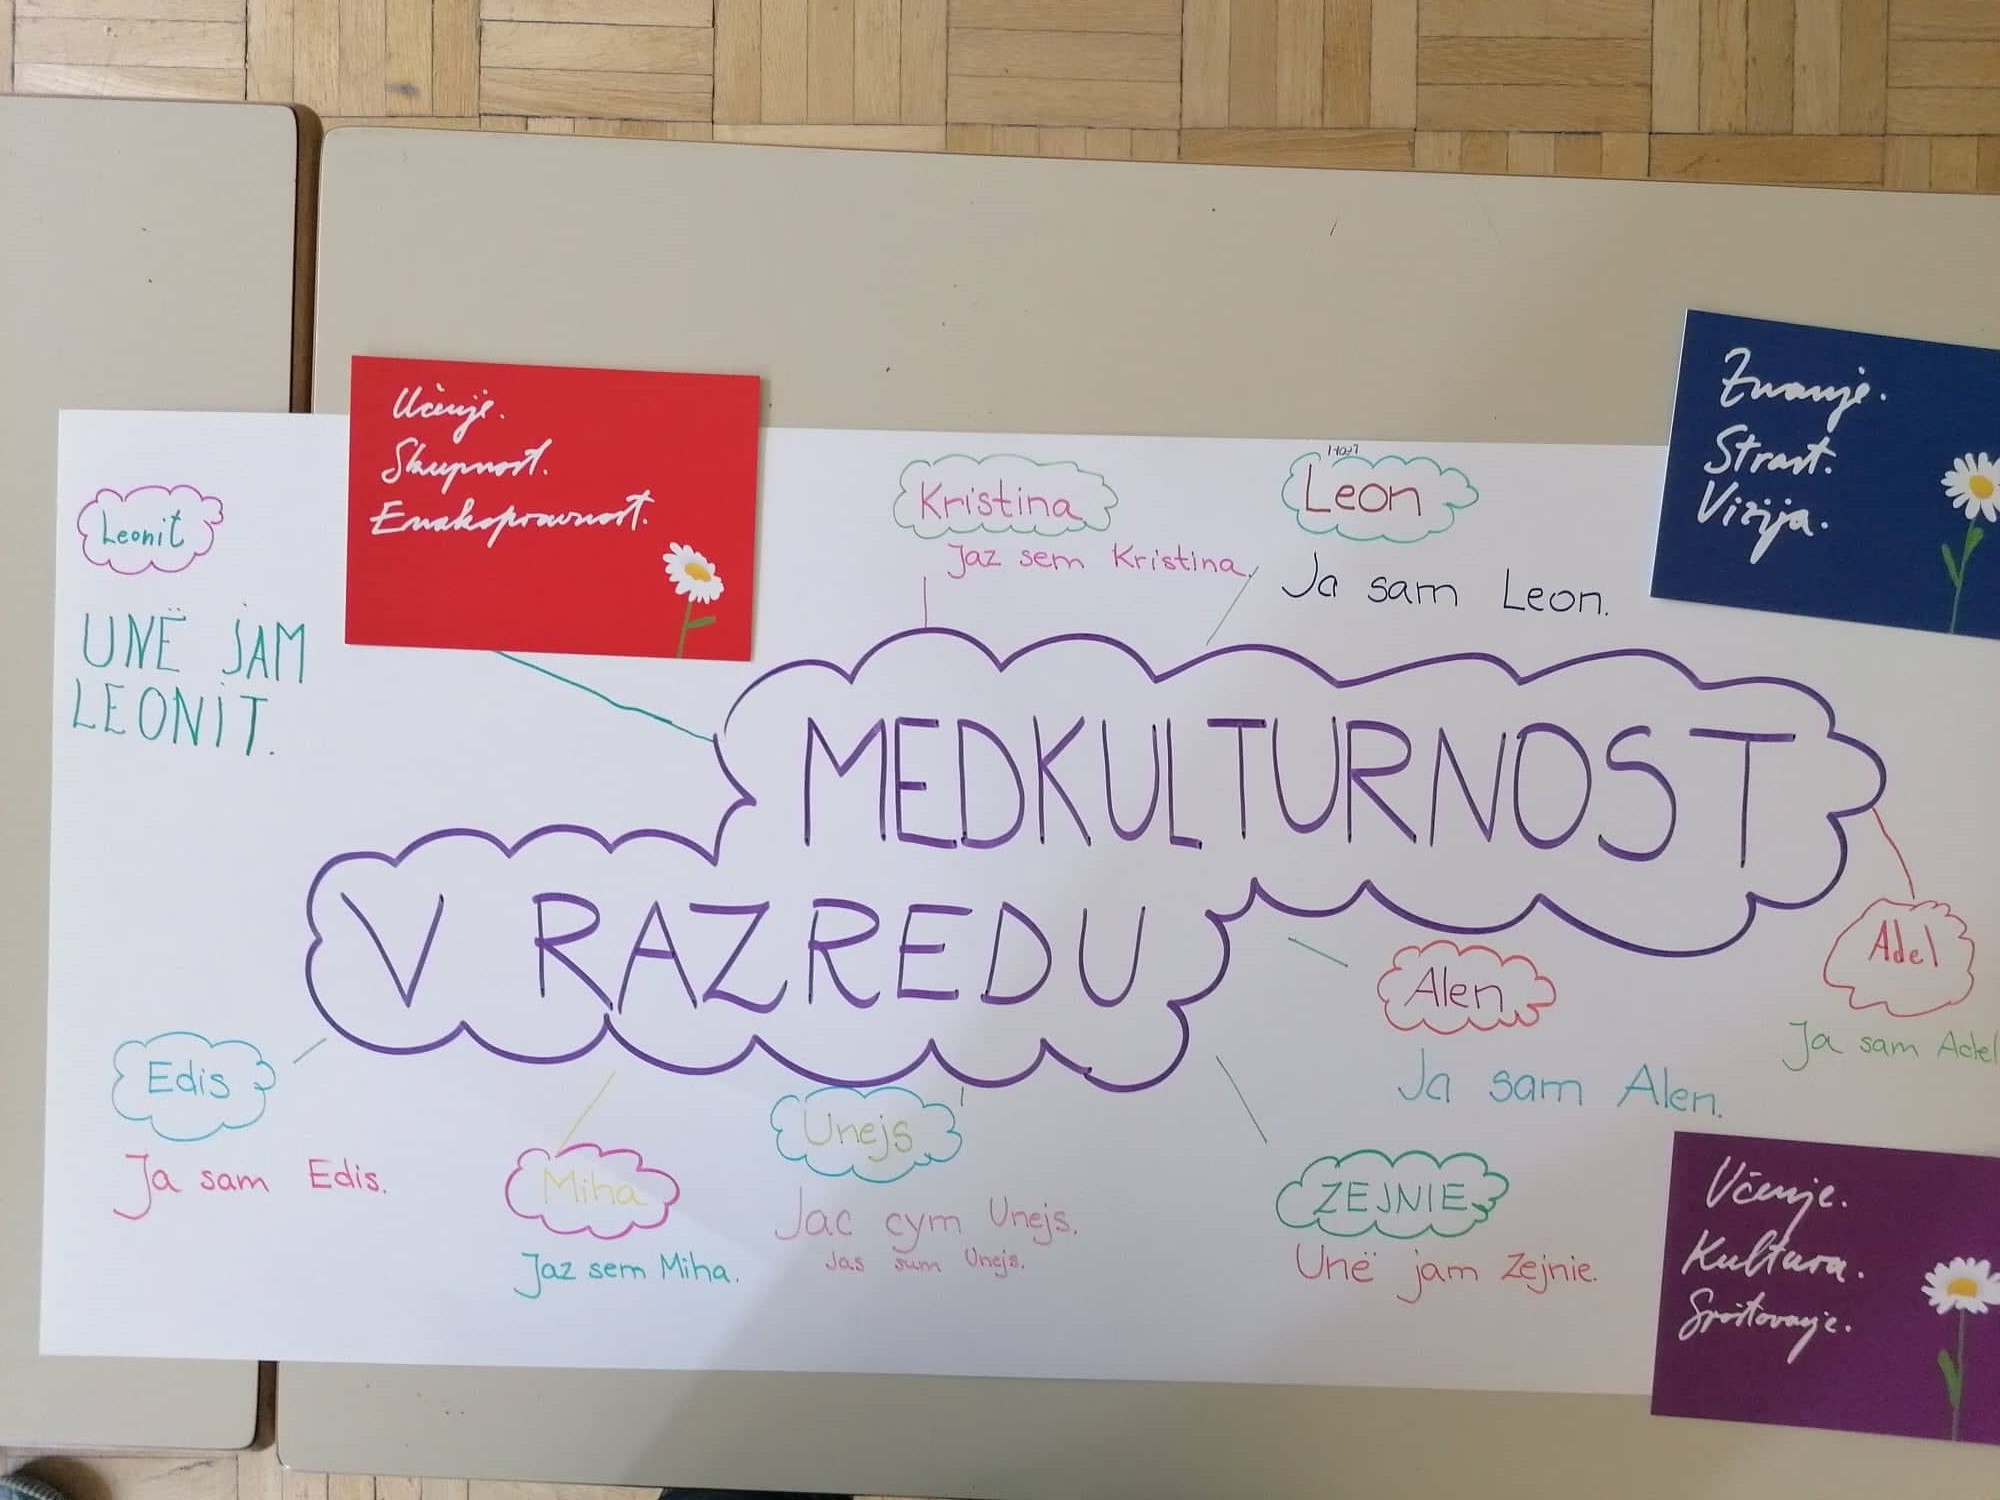 Učenje.
Skupnost.
Enakopravnost.
Znanje.
Strast.
Vizija.
Leonit
UNË JAM
LEONIT.
Kristina
Jaz sem Kristina.
Leon
Ja sam Leon.
MEDKULTURNOST
V RAZREDU
Adel
Ja sam Adel
Alen
Ja sam Alen.
Edis
Ja sam Edis.
Miha
Jaz sem Miha.
Unejs
Jac cym Unejs.
Jas sum Unejs.
ZEJNIE
Unë jam Zejnie.
Učenje.
Kultura.
Spoštovanje.